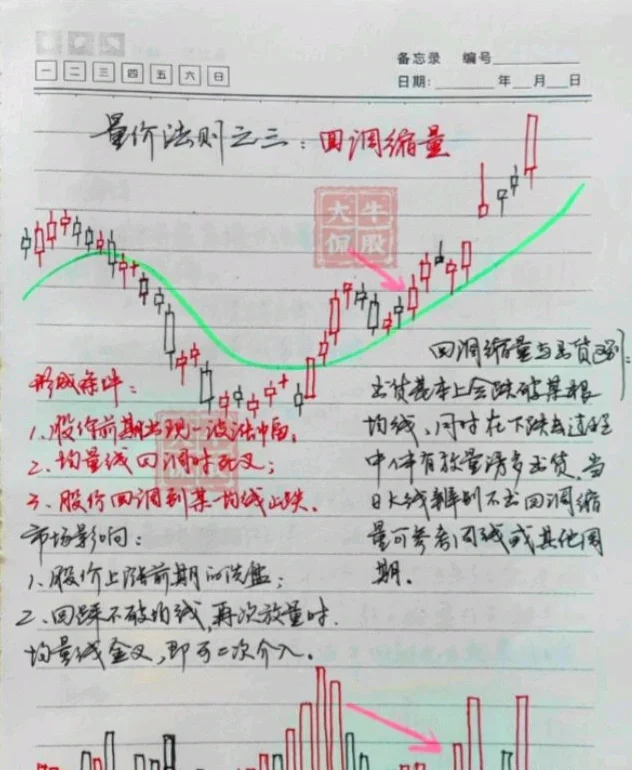 备忘录 编号
一 二 三 四 五 六 日
日期: 年 月 日
量价法则之三:回调缩量
大牛
侃股
回调缩量与出货区别:
形成条件:
出货基本上会跌破某根
1、股价前期出现一波涨幅。
均线、同时在下跌的过程
2、均量线回调时死叉;
中伴有放量诱多出货。当
3、股价回调到某一均线止跌。
日K线辨别不出回调缩
市场影响:
量可参考周线或其他周
1、股价上涨前期的洗盘;
期。
2、回踩不破均线,再次放量时.
均量线金叉,即可二次介入。